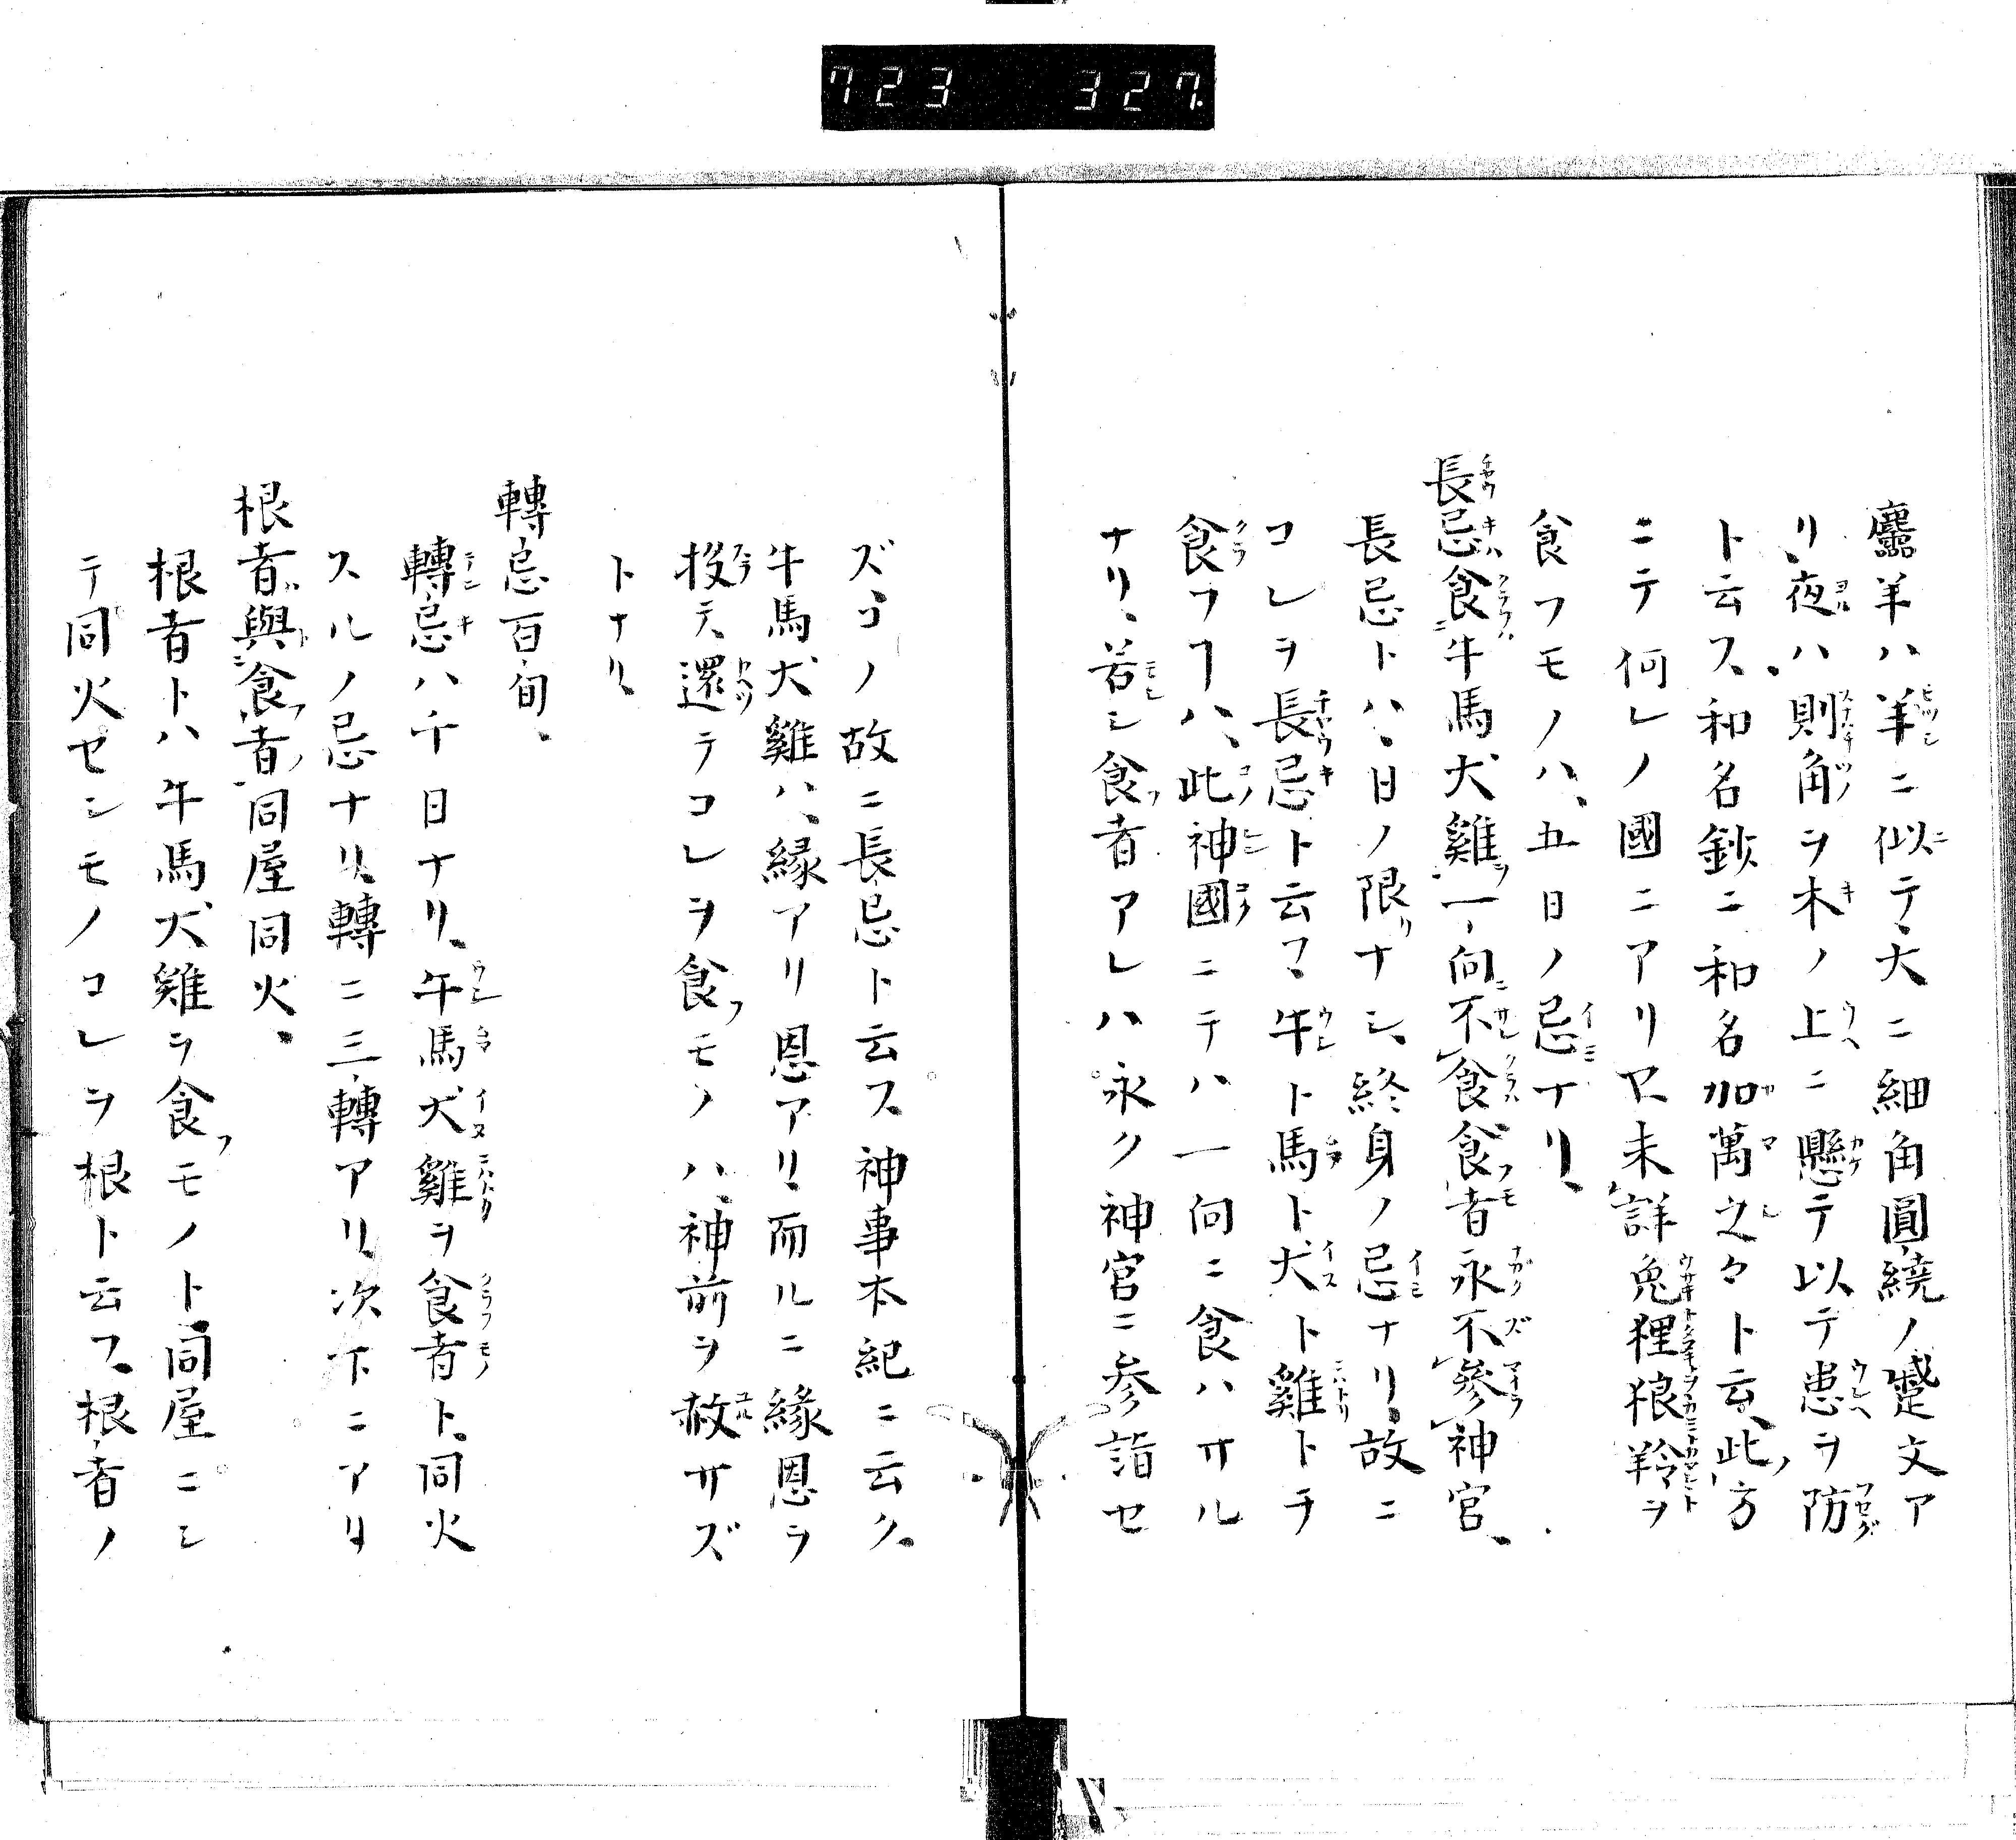 723 327.
麢羊ハ羊ニ似テ、大ニ細角圓繞ノ蹙文ア
リ、夜ハ則角ヲ木ノ上ニ懸テ以テ患ヲ防
ト云フ、和名鈔ニ和名加萬之々ト云、此方
ニテ何レノ國ニアリヤ未詳兔狸狼羚ヲ
食フモノハ、五日ノ忌ナリ、
長忌食牛馬犬雞一向不食食者永不參神宮、
長忌トハ、日ノ限リナシ、終身ノ忌ナリ、故ニ
コレヲ長忌ト云フ、牛ト馬ト犬ト雞トヲ
食フヿハ、此神國ニテハ一向ニ食ハサル
ナリ、若シ食者アレハ永ク神宮ニ参詣セ
ズ、コノ故ニ長忌ト云フ、神事本紀ニ云ク、
牛馬犬雞ハ、縁アリ恩アリ、而ルニ縁恩ヲ
投テ、還テコレヲ食フモノハ、神前ヲ赦サズ
トナリ、
轉忌百旬、
轉忌ハ千日ナリ、牛馬犬雞ヲ食者ト、同火
スルノ忌ナリ、轉ニ三轉アリ、次下ニアリ
根者與食者同屋同火、
根者トハ牛馬犬雞ヲ食フモノト、同屋ニシ
テ同火セシモノコレヲ根ト云フ、根者ノ